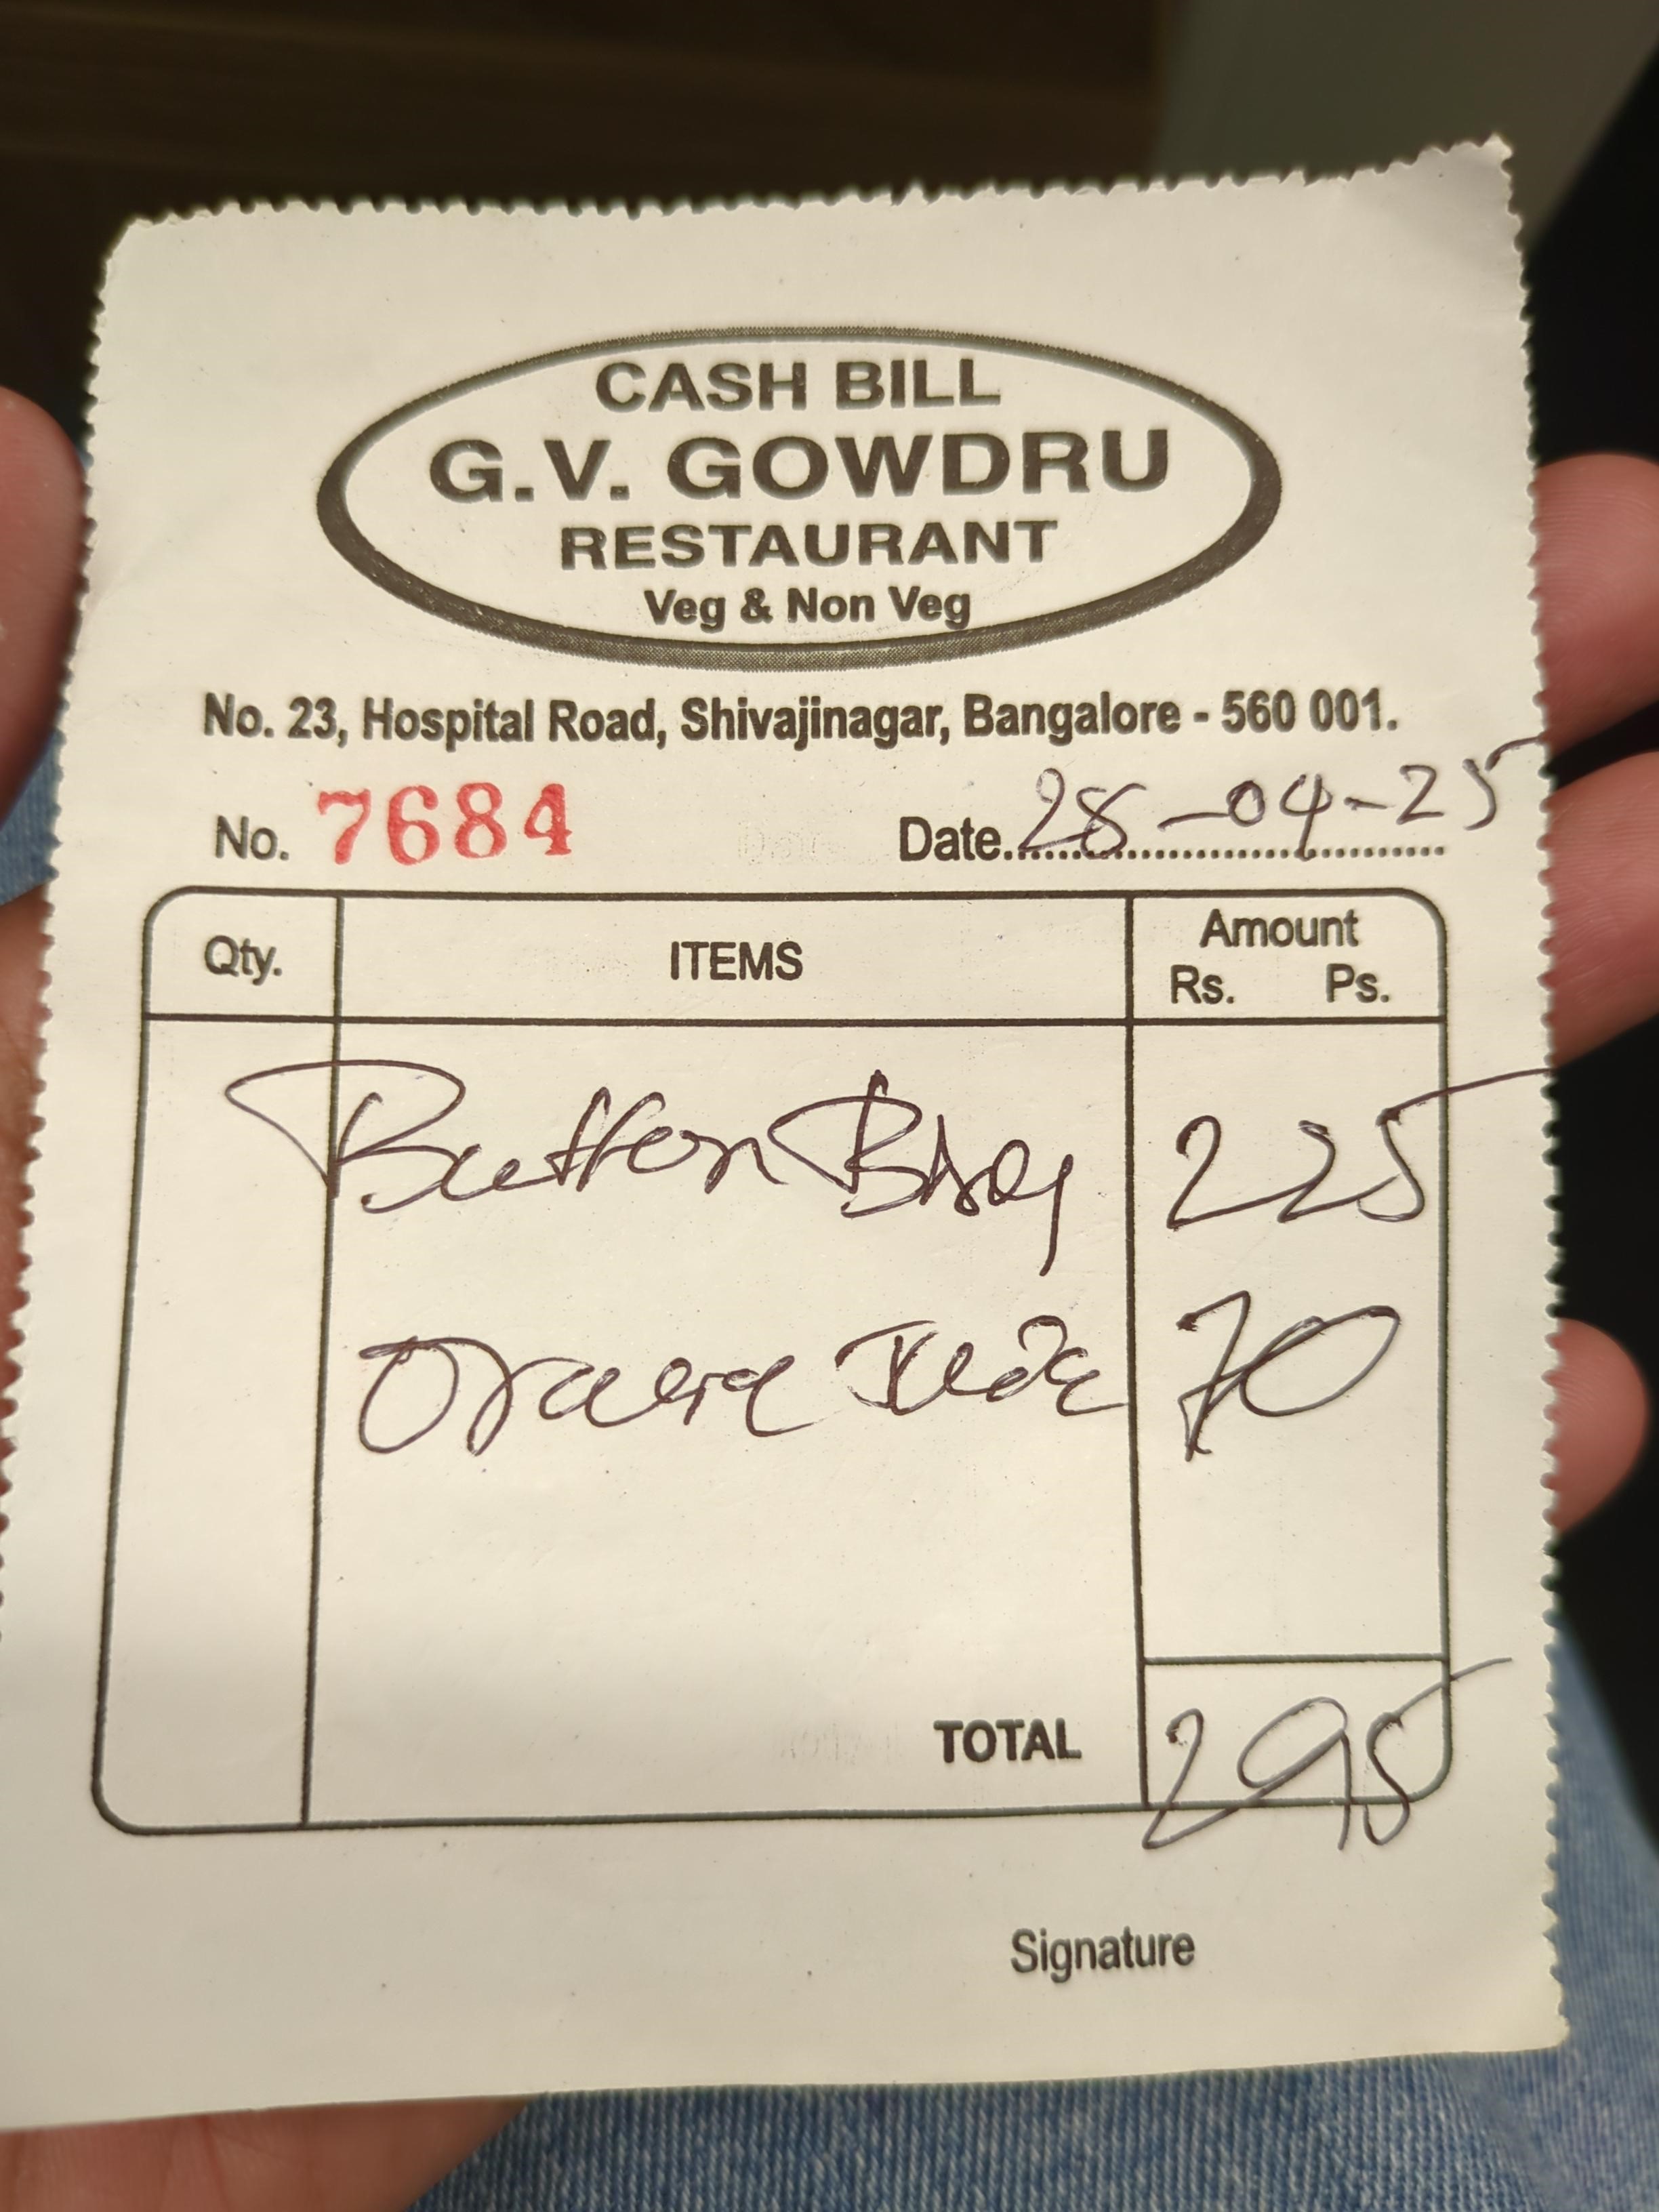 CASH BILL
G.V. GOWDRU
RESTAURANT
Veg & Non Veg
No. 23, Hospital Road, Shivajinagar, Bangalore - 560 001.
No. 7684 Date. 28-04-25
Qty. ITEMS Amount
Rs. Ps.
Button 225
70
TOTAL 295
Signature